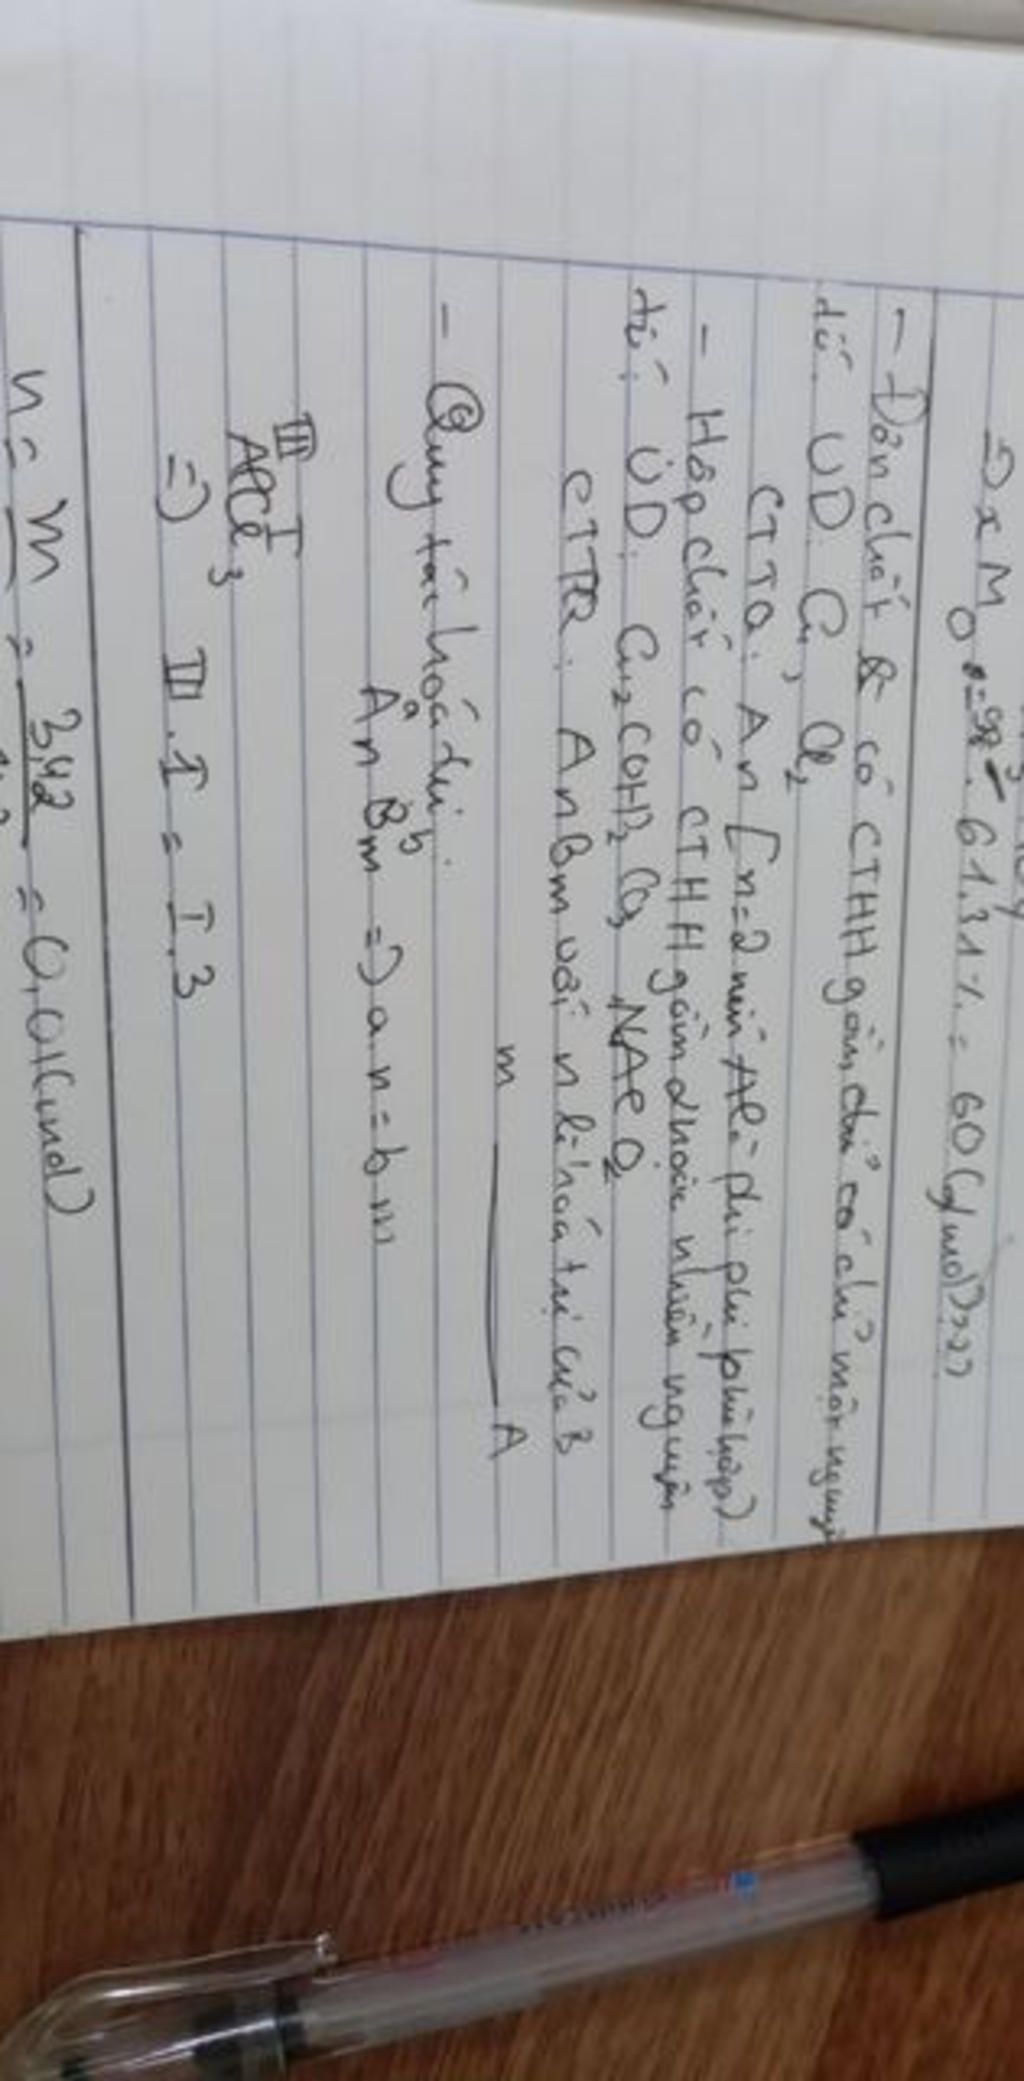 => x M O = 98 . 61,31% = 60 (g/mol) >??
- Đơn chất & có CTHH gồm chỉ có chỉ một nguyên
tố. VD Cu, Cl2
CTTQ: An [n=2 nếu A là phi phi phù hợp)
- Hợp chất có CTHH gồm 2 hoặc nhiều nguyên
tố. VD: Cu2(OH)2CO3 NAlO2
CTTQ: AnBm với n là hoá trị của B
m A
- Quy tắc hoá trị:
a b
An Bm => a.n = b.m
III I
AlCl3
=) III.1 = I.3
n = m = 3,42 = 0,01(mol)